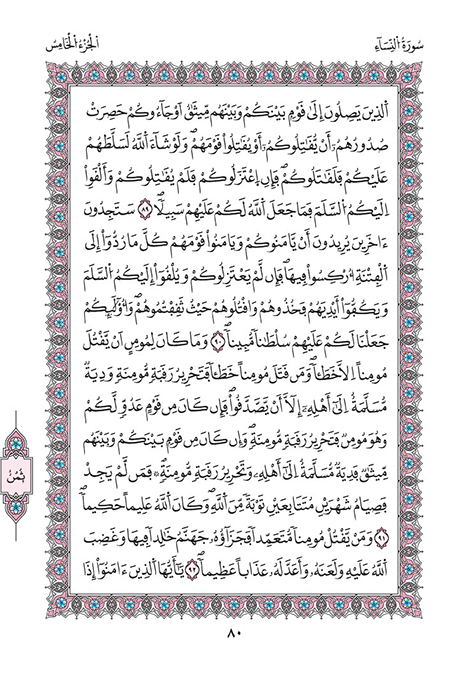 سُورَةُ النِّسَآءِ
الْجُزْءُ الْخَامِسُ
اَلذِينَ يَصِلُونَ إِلَىٰ قَوْمِۭ بَيْنَكُمْ وَبَيْنَهُم مِّيثَٰقٌ اَوْ جَآءُوكُمْ حَصِرَتْ
صُدُورُهُمُۥٓ أَنْ يُّقَٰتِلُوكُمُۥٓ أَوْ يُقَٰتِلُواْ قَوْمَهُمْ وَلَوْ شَآءَ اَللَّهُ لَسَلَّطَهُمْ
عَلَيْكُمْ فَلَقَٰتَلُوكُمْ فَإِنِ اِعْتَزَلُوكُمْ فَلَمْ يُقَٰتِلُوكُمْ وَأَلْقَوِاْ
اِلَيْكُمُ اُلسَّلَمَ فَمَا جَعَلَ اَللَّهُ لَكُمْ عَلَيْهِمْ سَبِيلًا ٨٩ سَتَجِدُونَ
ءَاخَرِينَ يُرِيدُونَ أَنْ يَّامَنُوكُمْ وَيَامَنُواْ قَوْمَهُمْ كُلَّ مَا رُدُّوٓاْ إِلَى
اَلْفِتْنَةِ أُرْكِسُواْ فِيهَا فَإِن لَّمْ يَعْتَزِلُوكُمْ وَيُلْقُوٓاْ إِلَيْكُمُ اُلسَّلَمَ
وَيَكُفُّوٓاْ أَيْدِيَهُمْ فَخُذُوهُمْ وَاقْتُلُوهُمْ حَيْثُ ثَقِفْتُمُوهُمْ وَأُوْلَٰٓئِكُمْ
جَعَلْنَا لَكُمْ عَلَيْهِمْ سُلْطَٰناً مُّبِيناً ٩٠ وَمَا كَانَ لِمُومِنٍ اَنْ يَّقْتُلَ
مُومِناً اِلَّا خَطَـٔاً وَمَن قَتَلَ مُومِناً خَطَـٔاً فَتَحْرِيرُ رَقَبَةٍ مُّومِنَةٍ وَدِيَةٌ
مُّسَلَّمَةٌ اِلَىٰٓ أَهْلِهِۦٓ إِلَّآ أَنْ يَّصَّدَّقُواْ فَإِن كَانَ مِن قَوْمٍ عَدُوٍّ لَّكُمْ
وَهُوَ مُومِنٌ فَتَحْرِيرُ رَقَبَةٍ مُّومِنَةٍ وَإِن كَانَ مِن قَوْمِۭ بَيْنَكُمْ وَبَيْنَهُم
مِّيثَٰقٌ فَدِيَةٌ مُّسَلَّمَةٌ اِلَىٰٓ أَهْلِهِۦ وَتَحْرِيرُ رَقَبَةٍ مُّومِنَةٍ فَمَن لَّمْ يَجِدْ
فَصِيَامُ شَهْرَيْنِ مُتَتَابِعَيْنِ تَوْبَةً مِّنَ اَللَّهِ وَكَانَ اَللَّهُ عَلِيماً حَكِيماً
٩١ وَمَنْ يَّقْتُلْ مُومِناً مُّتَعَمِّداً فَجَزَآؤُهُۥ جَهَنَّمُ خَٰلِداً فِيهَا وَغَضِبَ
اَللَّهُ عَلَيْهِ وَلَعَنَهُۥ وَأَعَدَّ لَهُۥ عَذَاباً عَظِيماً ٩٢ يَٰٓأَيُّهَا اَلذِينَ ءَامَنُوٓاْ إِذَا
ثُمُنْ
٨٠